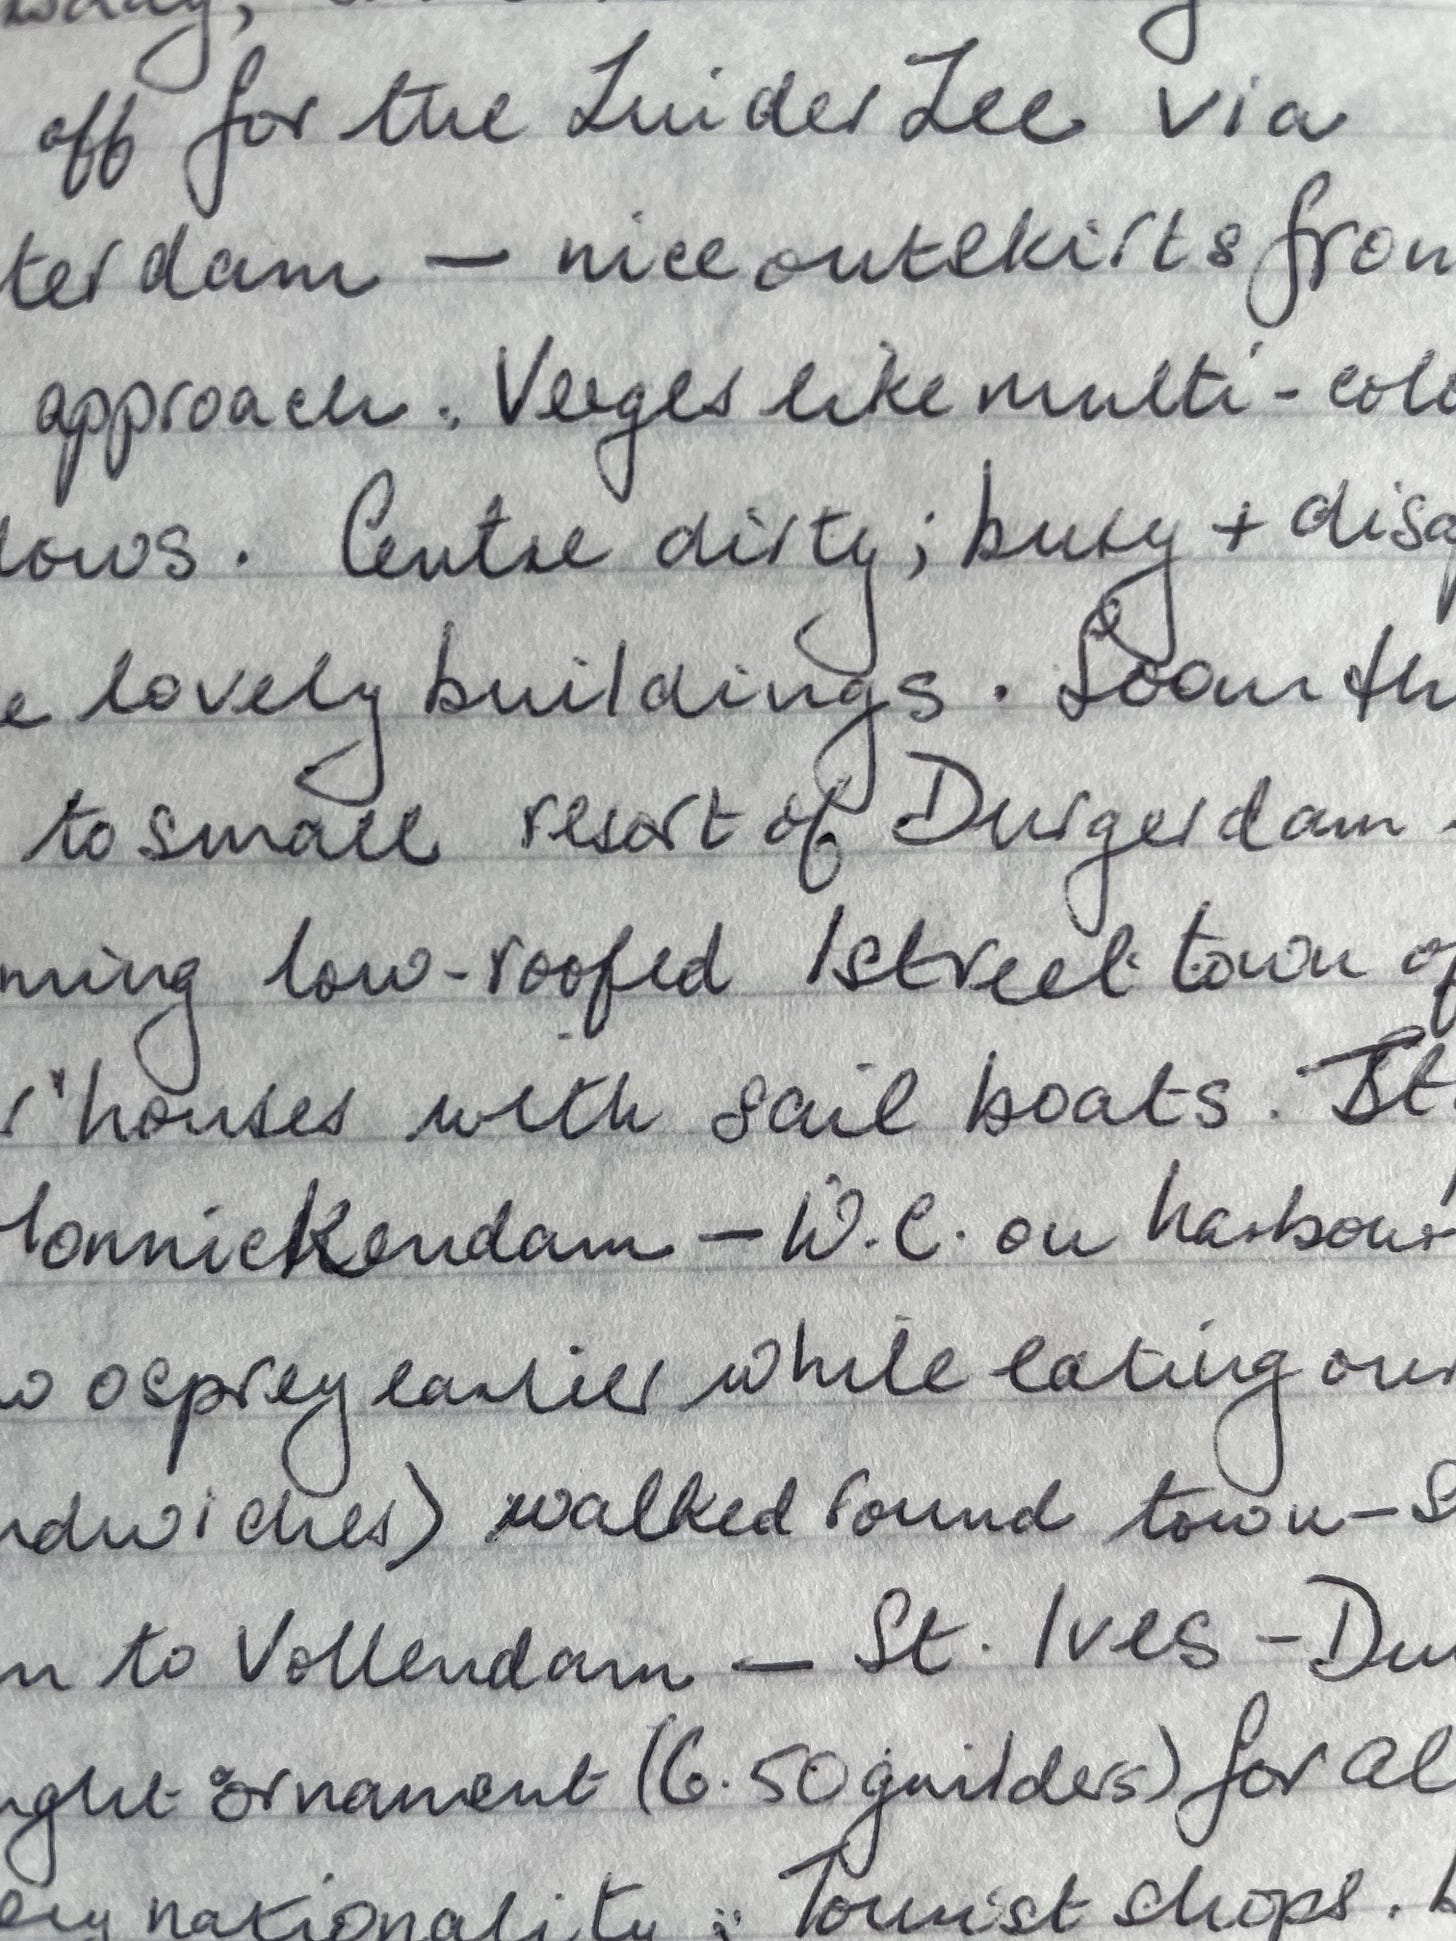 off for the Zuider Zee via
terdam — nice outskirts from
approach. Verges like multi-colo
lows. Centre dirty; busy + disap
e lovely buildings. Soon th
to small resort of Durgerdam -
ming low-roofed 1 street town of
r' houses with sail boats. St
Monnickendam — W.C. on harbour
w osprey earlier while eating our
ndwiches) walked round town - S
n to Vollendam — St. Ives - Du
ught ornament (6.50 guilders) for Al
ery nationality; Tourist shops.